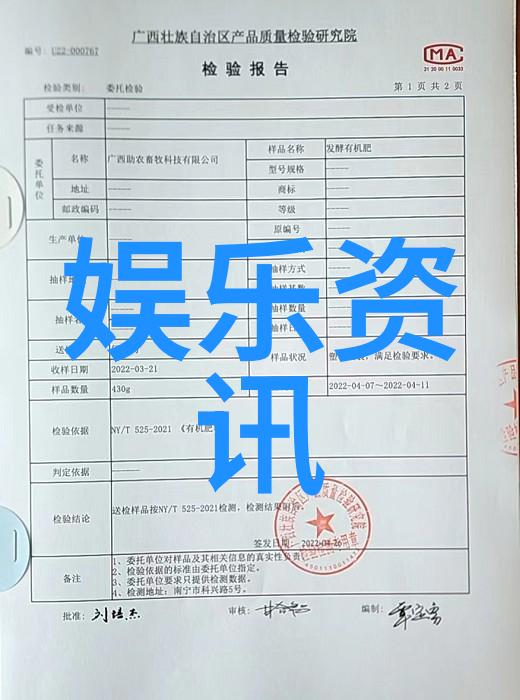 广西壮族自治区产品质量检验研究院
编号: U22-000767
检验报告
MA
21 20 00 11 0033
检验类别: 委托检验
第 1 页 共 2 页
受检单位 ———
任务来源 ———
委托单位
名称 广西助农畜牧科技有限公司 样品名称 发酵有机肥
型号规格 ———
地址 ——— 商标 ———
邮政编码 ——— 等级 ———
生产单位 原编号 ———
抽样 抽样方式 ———
抽样基数
抽样 抽样数量
抽样日
娱乐资讯
送 样品状况 满足检验要求。
收样日期 2022-03-21
样品数量 430g 2022-04-07~2022-04-11
检验依据 NY/T 525-2021 《有机肥
判定依据 ———
检验结论 送检样品按NY/T 525-2021检测，检测结果附
签发日期: 2022-04-26
备注
1、委托单位对样品及其相关信息的真实性负责。
2、检验依据的标准由委托单位指定。
3、委托单位要求只提供检测数据。
4、检测地址: 南宁市科兴路5号。
批准: 刘培杰 审核: 编制: